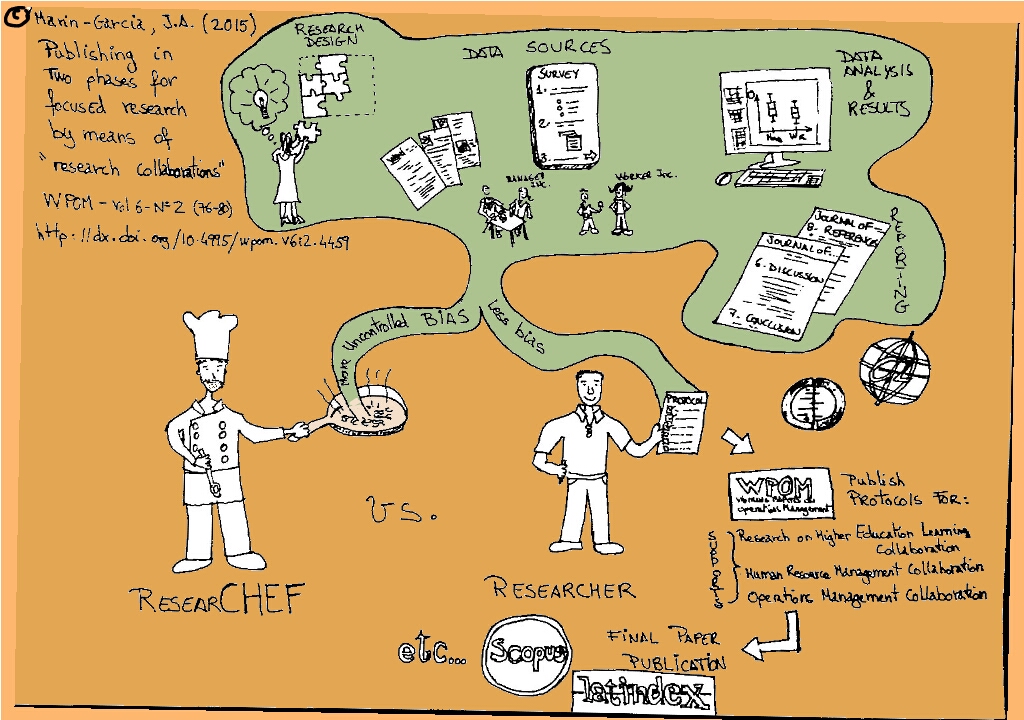 © Marin-Garcia, J.A. (2015)
Publishing in
Two phases for
focused research
by means of
"research collaborations"
WPOM - Vol 6 - Nº 2 (76-80)
http://dx.doi.org/10.4995/wpom.v6i2.4459
RESEARCH
DESIGN
DATA SOURCES
SURVEY
1.
2.
3.
MANAGER
INC.
WORKER INC.
DATA
ANALYSIS
&
RESULTS
REPORTING
JOURNAL OF
8. REFERENCE
JOURNAL OF...
6. DISCUSSION
7. CONCLUSION
More Uncontrolled BIAS
Less bias
PROTOCOL
vs.
RESEARCHEF
RESEARCHER
WPOM
WORKING PAPERS ON
Operations Management
Publish
PROTOCOLS FOR:
SUPPORTS
Research on Higher Education Learning
Collaboration
Human Resource Management Collaboration
Operations Management Collaboration
FINAL PAPER
PUBLICATION
etc...
Scopus
latindex